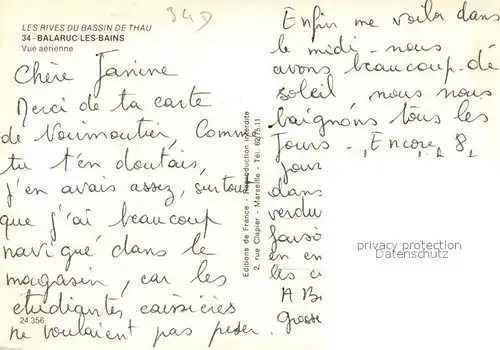 34D
LES RIVES DU BASSIN DE THAU
34 - BALARUC-LES-BAINS
Vue aérienne
Chère Janine
Merci de ta carte
de Noirmoutier, Comme
tu t'en doutais,
j'en avais assez, surtout
que j'ai beaucoup
navigué dans le
magasin, car les
étudiantes caissières
ne voulaient pas peser.
24 356
Editions de France - Reproduction interdite
2, rue Clapier - Marseille - Tél. 62.75.11
Enfin me voila dans
le midi - nous
avons beaucoup de
soleil nous nous
baignons tous les
Jours - Encore 8
jour
dans
verdu
faiso
en en
les
A B
Grosse
privacy protection
Datenschutz